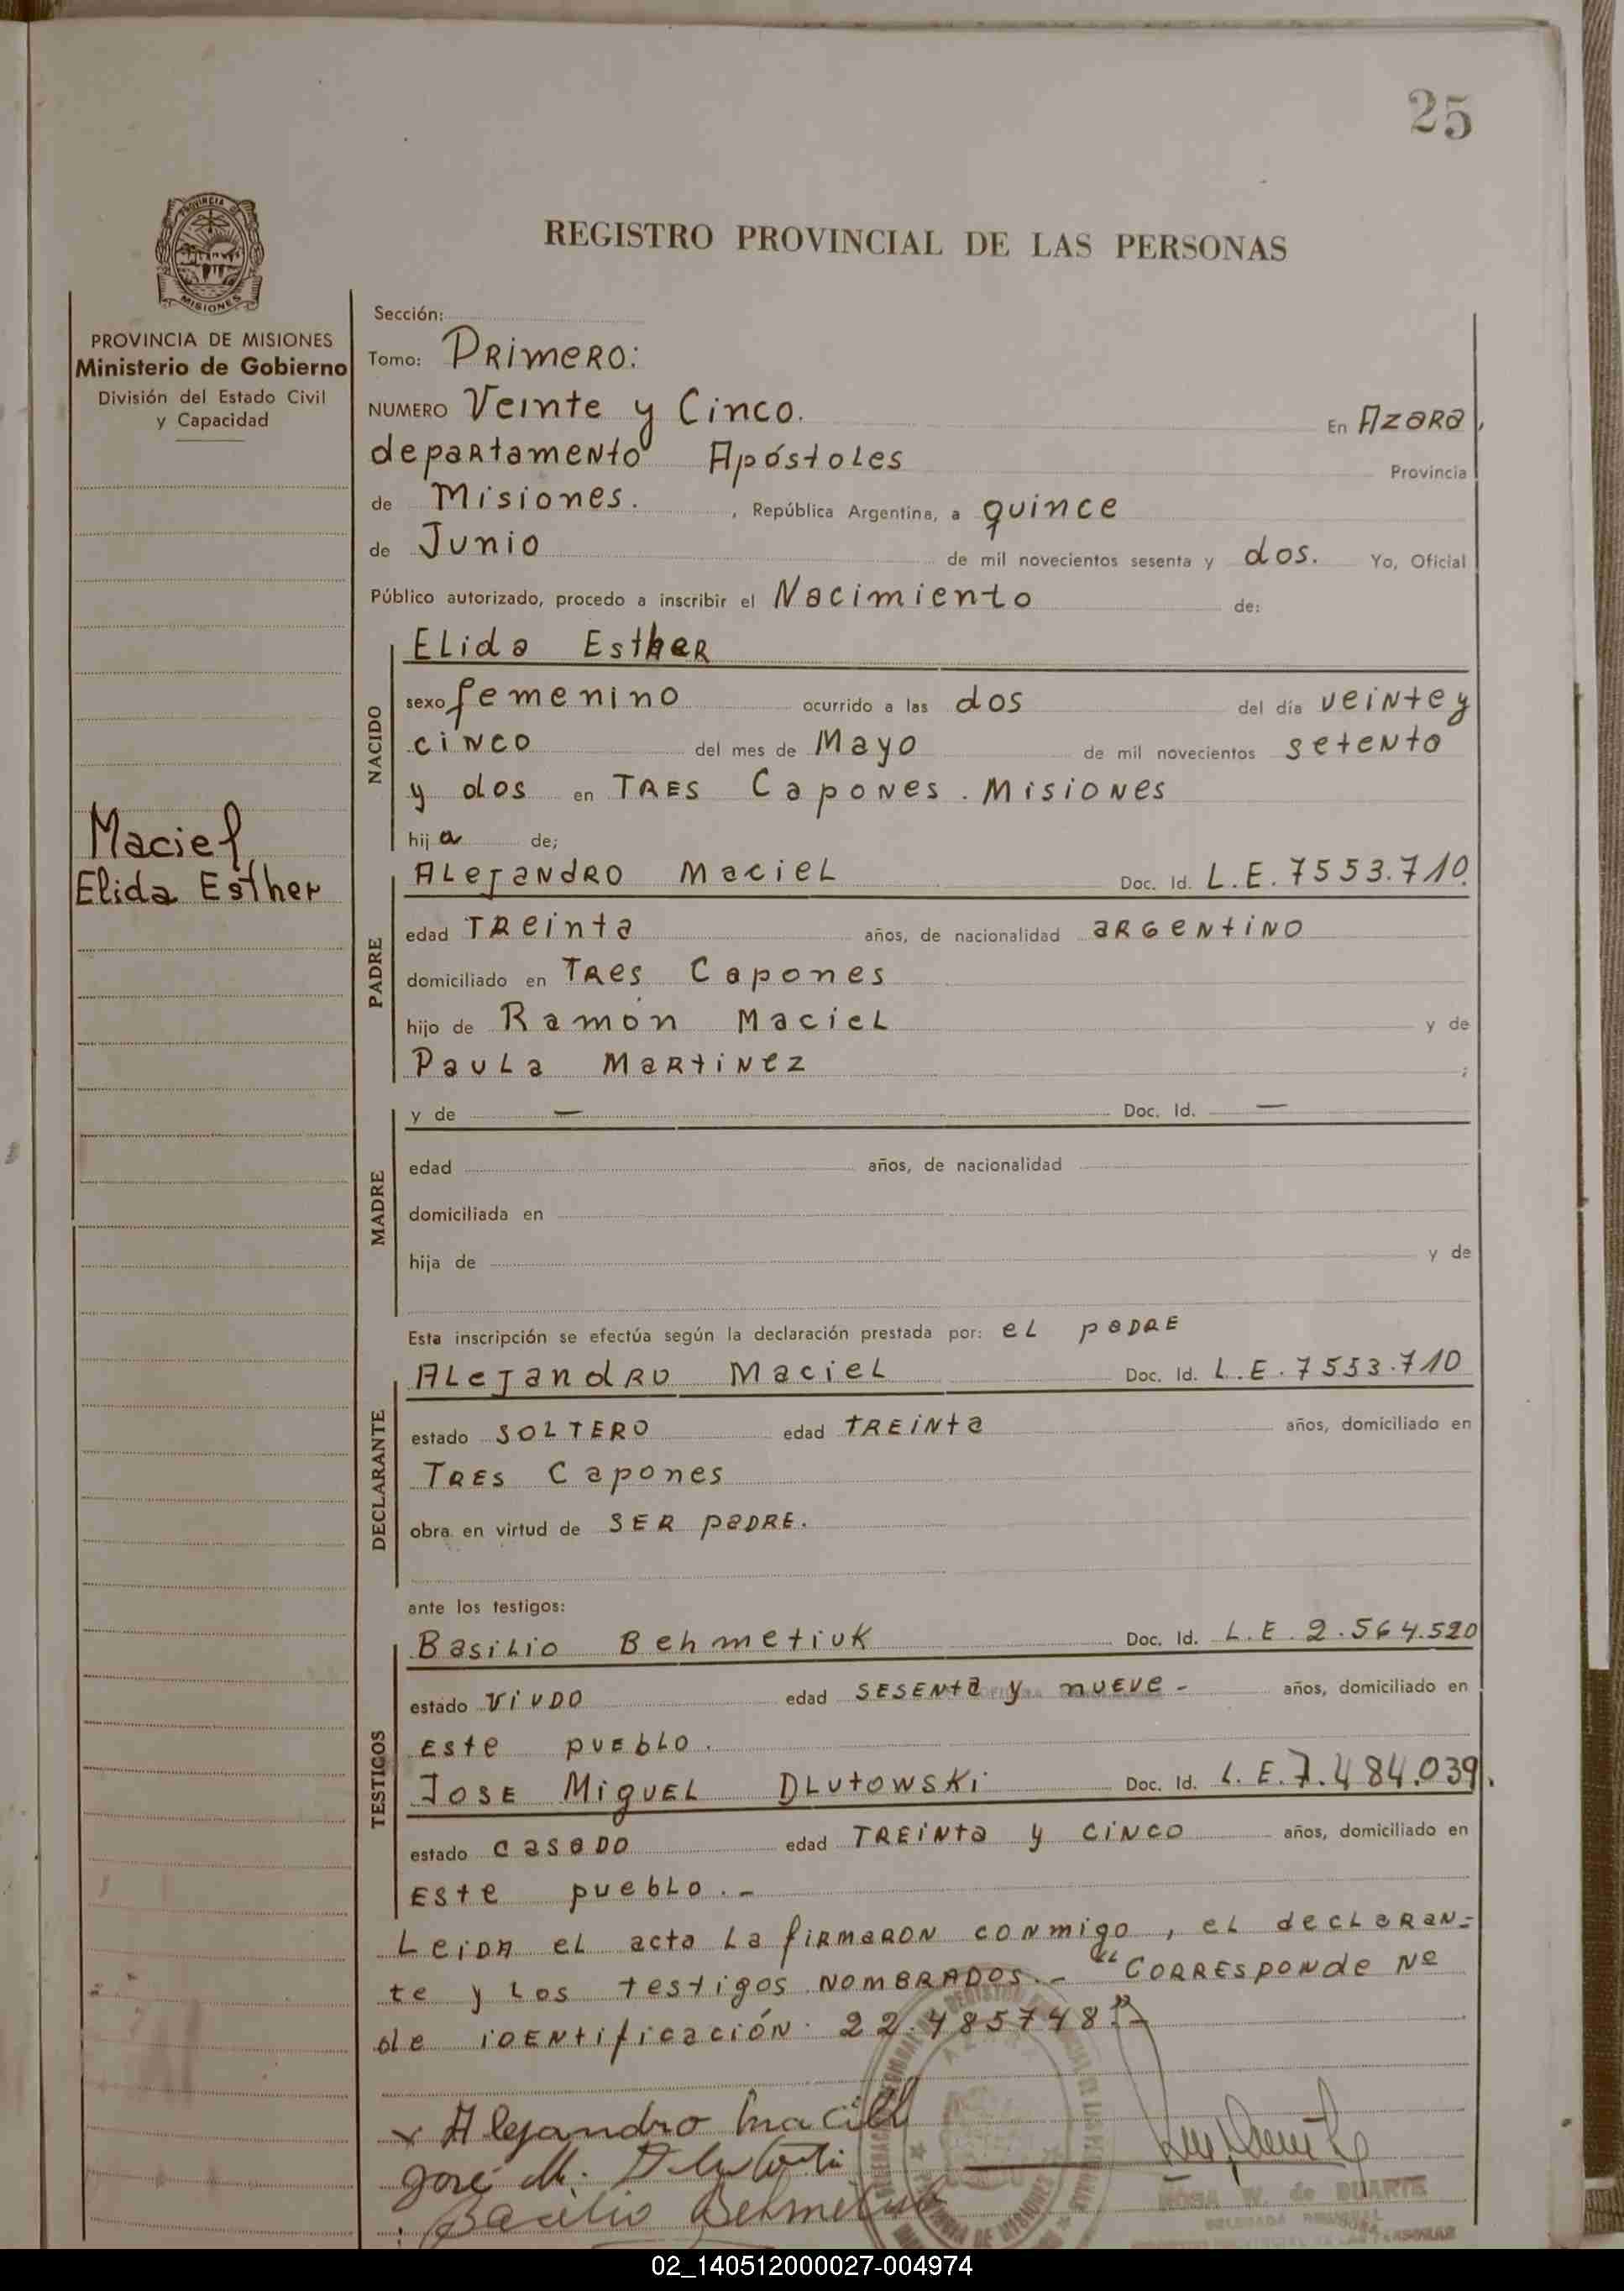 25
PROVINCIA DE
MISIONES
REGISTRO PROVINCIAL DE LAS PERSONAS
PROVINCIA DE MISIONES
Ministerio de Gobierno
División del Estado Civil
y Capacidad
Maciel
Elida Esther
Sección:
Tomo: Primero:
NUMERO Veinte y Cinco. En Azara,
departamento Apóstoles Provincia
de Misiones. , República Argentina, a quince
de Junio de mil novecientos sesenta y dos. Yo, Oficial
Público autorizado, procedo a inscribir el Nacimiento de:
NACIDO
Elida Esther
sexo femenino ocurrido a las dos del día veinte y
cinco del mes de Mayo de mil novecientos setenta
y dos en Tres Capones. Misiones
hija de;
PADRE
Alejandro Maciel Doc. Id. L.E. 7553.710.
edad Treinta años, de nacionalidad argentino
domiciliado en Tres Capones
hijo de Ramón Maciel y de
Paula Martinez ;
MADRE
y de — Doc. Id. —
edad años, de nacionalidad
domiciliada en
hija de y de
Esta inscripción se efectúa según la declaración prestada por: el padre
DECLARANTE
Alejandro Maciel Doc. Id. L.E. 7553.710
estado soltero edad treinta años, domiciliado en
Tres Capones
obra en virtud de ser padre.
ante los testigos:
TESTIGOS
Basilio Behmetiuk Doc. Id. L.E. 2.564.520
estado viudo edad sesenta y nueve - años, domiciliado en
Este pueblo.
Jose Miguel Dlutowski Doc. Id. L.E. 7.484.039.
estado casado edad treinta y cinco años, domiciliado en
Este pueblo. -
Leida el acta la firmaron conmigo, el declaran-
te y los testigos nombrados. - "Corresponde Nº
de identificación 22.485748" -
x Alejandro Maciel
José M. Dlutowski
Basilio Behmetiuk
ROSA W. de DUARTE
02_140512000027-004974